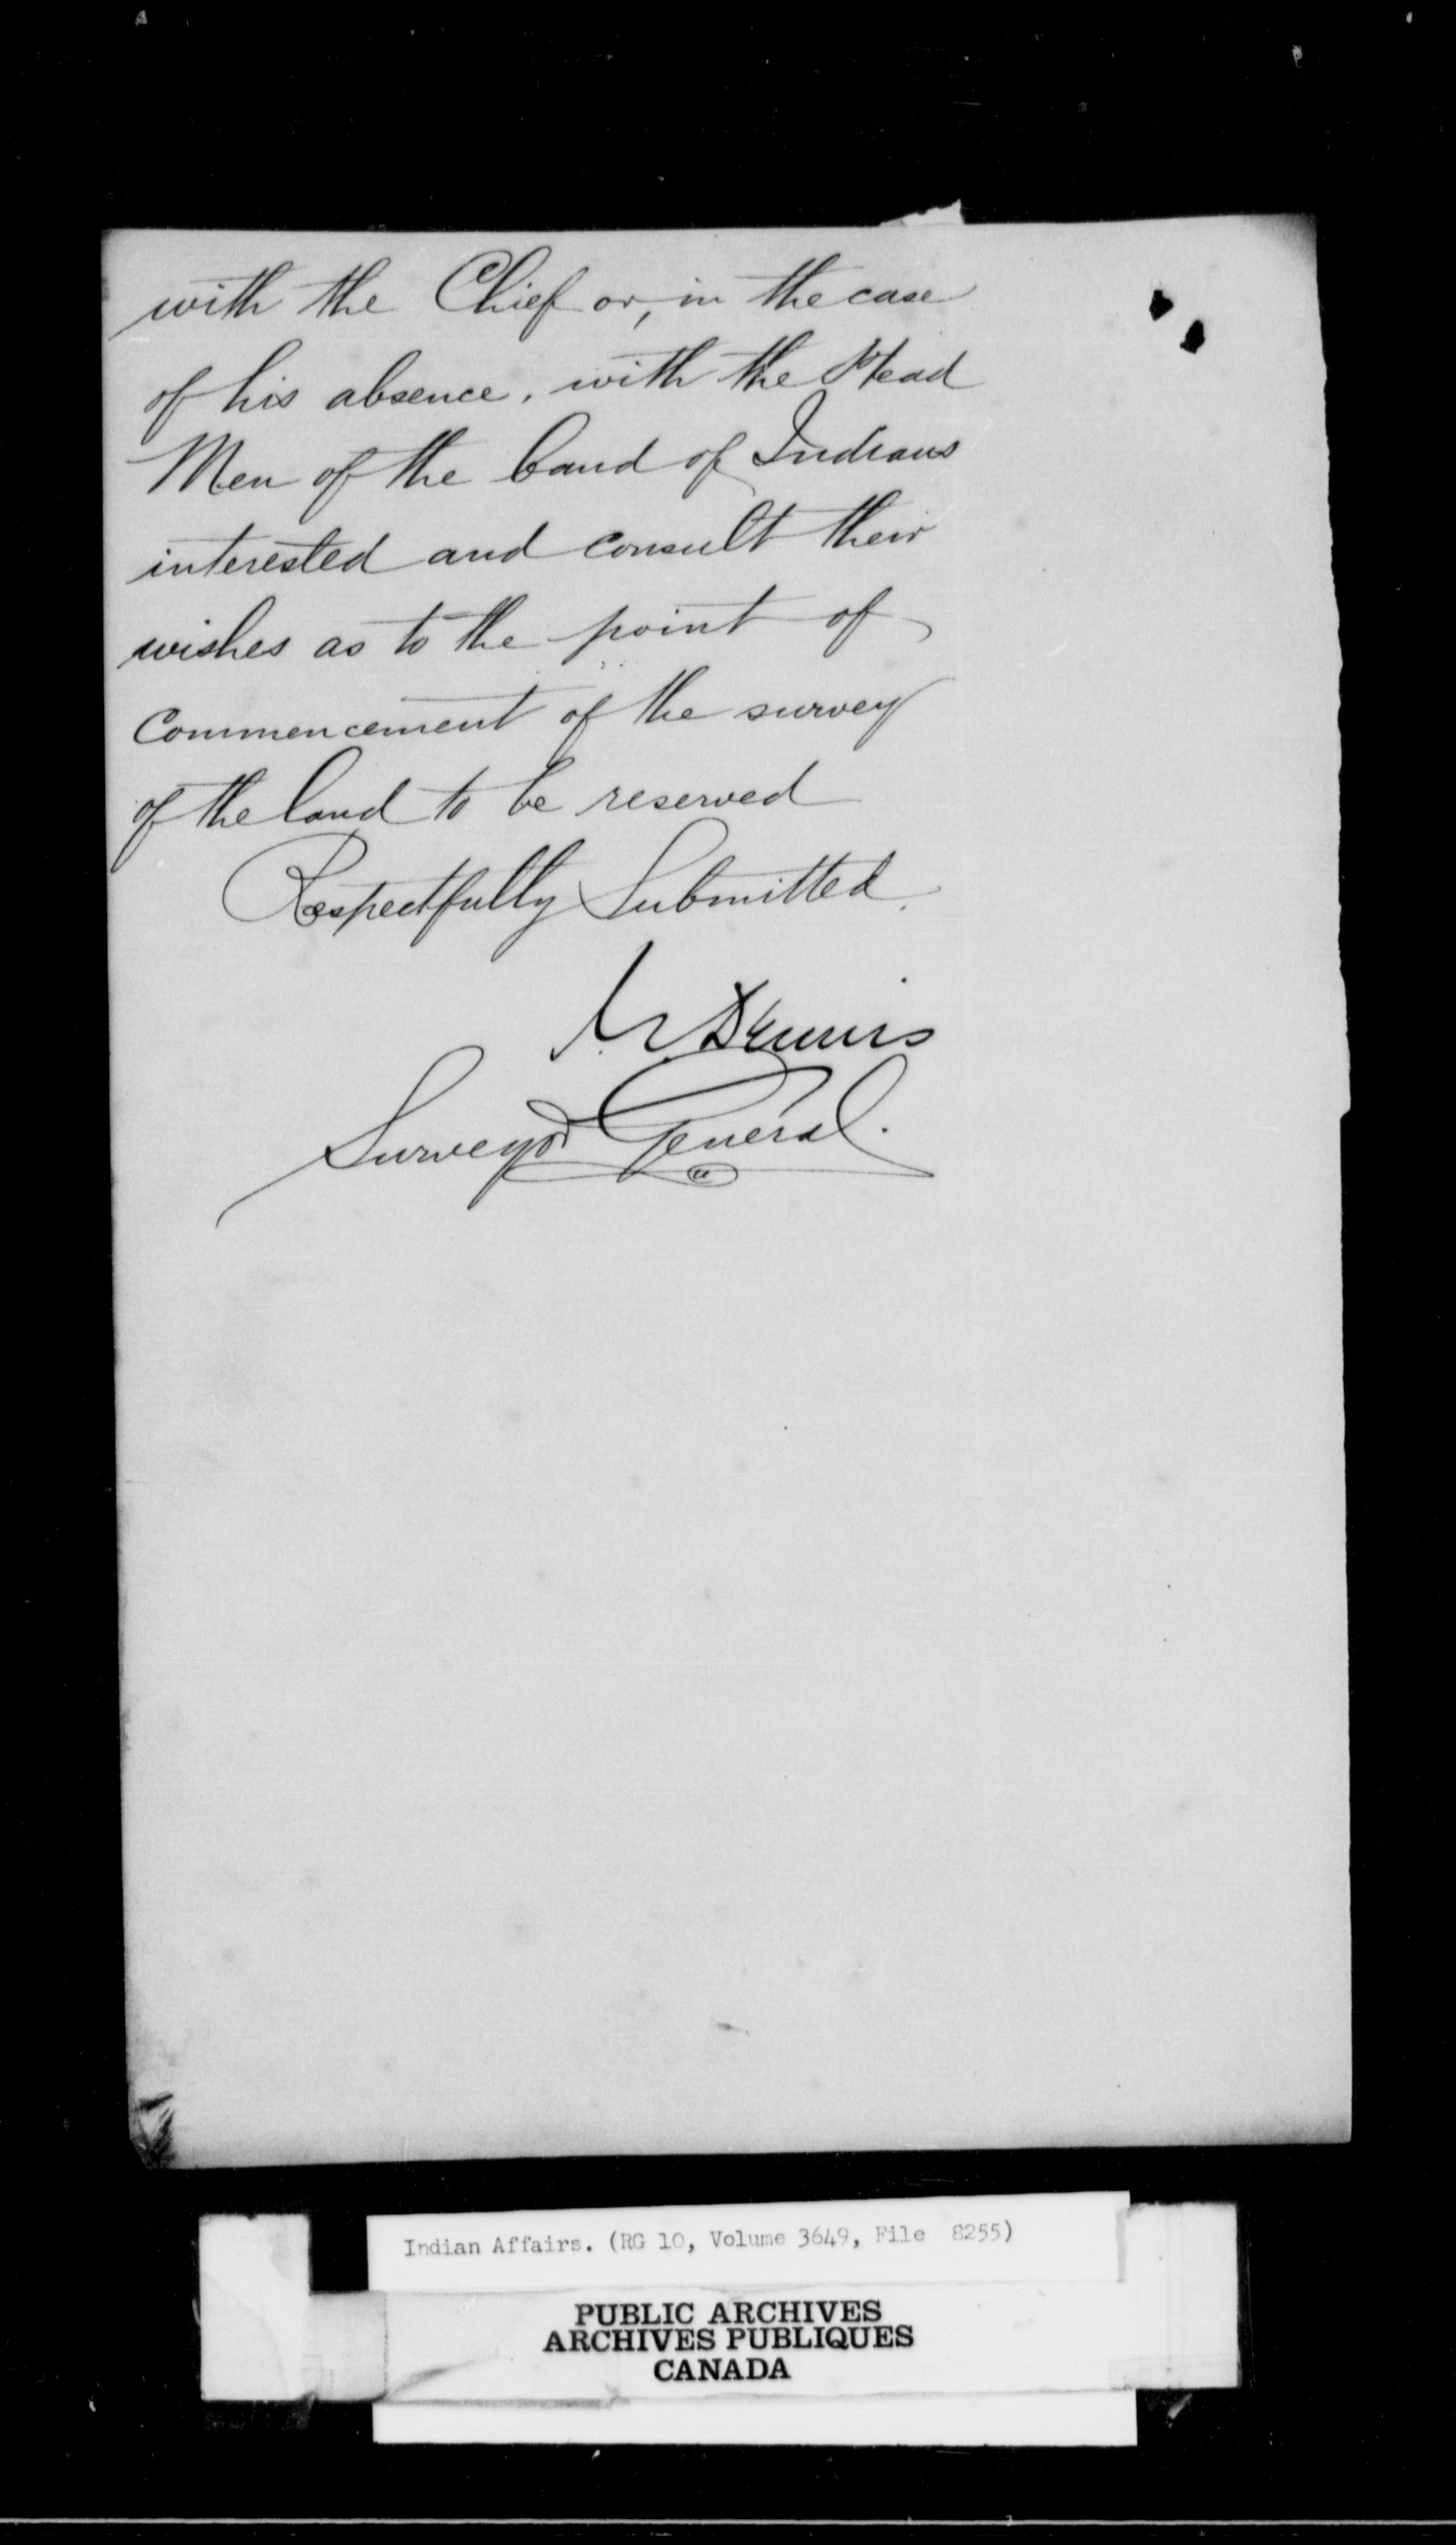 with the Chief or, in the case
of his absence, with the Head
Men of the band of Indians
interested and consult their
wishes as to the point of
Commencement of the survey
of the land to be reserved
Respectfully Submitted.
Dennis
Surveyor General.
Indian Affairs. (RG 10, Volume 3649, File 8255)
PUBLIC ARCHIVES
ARCHIVES PUBLIQUES
CANADA